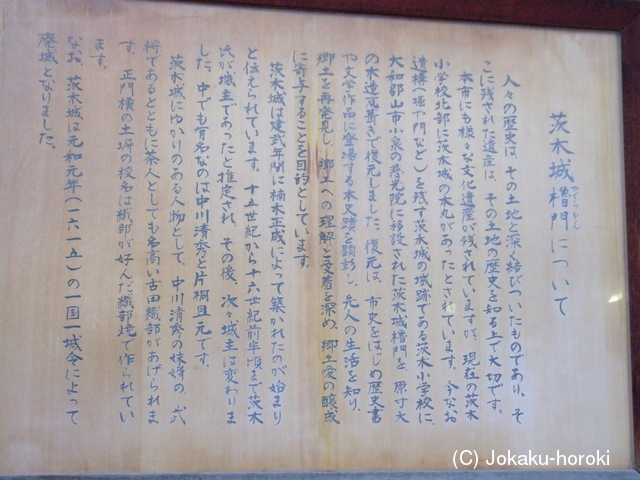 茨木城櫓門について
やぐらもん
人々の歴史は、その土地と深く結びついたものであり、そ
こに残された遺産は、その土地の歴史を知る上で大切です。
本市にも様々な文化遺産が残されていますが、現在の茨木
小学校北部に茨木城の本丸があったとされています。今なお
遺構(堀や門など)を残す茨木城の城跡である茨木小学校に、
大和郡山市小泉の慈光院に移設された茨木城櫓門を、原寸大
の木造瓦葺きで復元しました。復元は、市史をはじめ歴史書
や文学作品に登場する本史蹟を顕彰し、先人の生活を知り、
郷土を再発見し、郷土への理解と愛着を深め、郷土愛の醸成
に寄与することを目的としています。
茨木城は建武年間に楠木正成によって築かれたのが始まり
と伝えられています。十五世紀から十六世紀前半頃まで茨木
氏が城主であったと推定され、その後、次々城主は変わりま
した。中でも有名なのは中川清秀と片桐且元です。
茨木城にゆかりのある人物として、中川清秀の妹婿の、武
将であるとともに茶人としても名高い古田織部があげられま
す。正門横の土塀の校名は織部が好んだ織部焼で作られてい
ます。
なお、茨木城は元和元年(一六一五)の一国一城令によって
廃城となりました。
(C) Jokaku-horoki